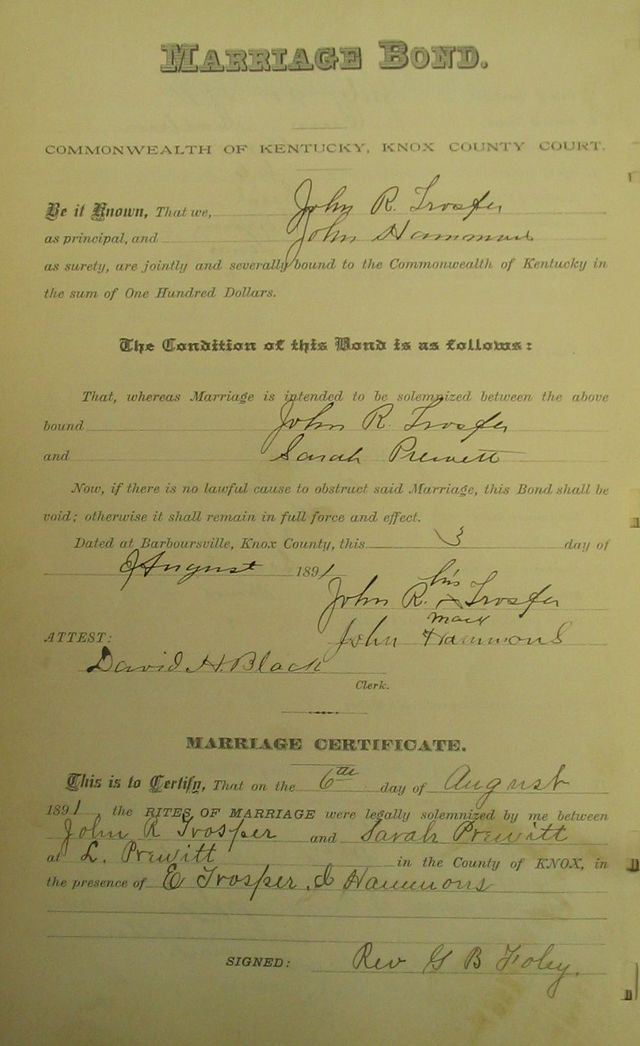 MARRIAGE BOND.
COMMONWEALTH OF KENTUCKY, KNOX COUNTY COURT.
Be it Known, That we, John R. Trosper
as principal, and John Hammons
as surety, are jointly and severally bound to the Commonwealth of Kentucky in
the sum of One Hundred Dollars.
The Condition of this Bond is as follows:
That, whereas Marriage is intended to be solemnized between the above
bound John R. Trosper
and Sarah Prewett
Now, if there is no lawful cause to obstruct said Marriage, this Bond shall be
void; otherwise it shall remain in full force and effect.
Dated at Barboursville, Knox County, this 3 day of
August 1891
his
John R. x Trosper
mark
ATTEST: John Hammons
David H. Black
Clerk.
MARRIAGE CERTIFICATE.
This is to Certify, That on the 6th day of August
1891 the RITES OF MARRIAGE were legally solemnized by me between
John R Trosper and Sarah Prewitt
at L. Prewitt in the County of KNOX, in
the presence of E Trosper. Hammons
SIGNED: Rev G B Foley.